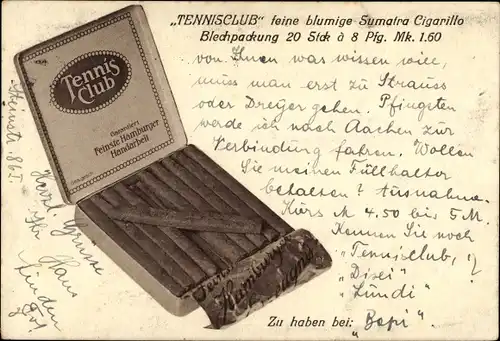 „TENNISCLUB“ feine blumige Sumatra Cigarillo
Blechpackung 20 Stck à 8 Pfg. Mk. 1.60
von Ihnen was wissen will,
muss man erst zu Strauss
oder Dreyer gehen. Pfingsten
werde ich nach Aachen zur
Verbindung fahren. Wollen
Sie meinen Füllhalter
behalten? Ausnahme-
Kurs M 4,50 bis 5 M.
Kennen Sie noch
„Tennisclub,
„Disei“
„Lundi“
Zu haben bei: „Bopi“
Tennis
Club
Garantiert
Feinste Hamburger
Handarbeit
Hamburger
Steinstr. 86 I.
Herzl. Grüsse
Ihr Hans
Linden